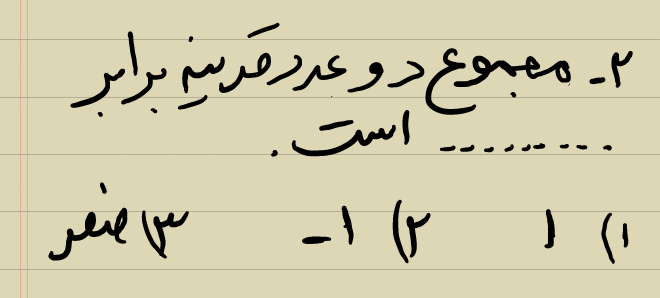 ۲- مجموع دو عدد قرینه برابر
......... است.
۱) ۱ ۲) ۱- ۳) صفر